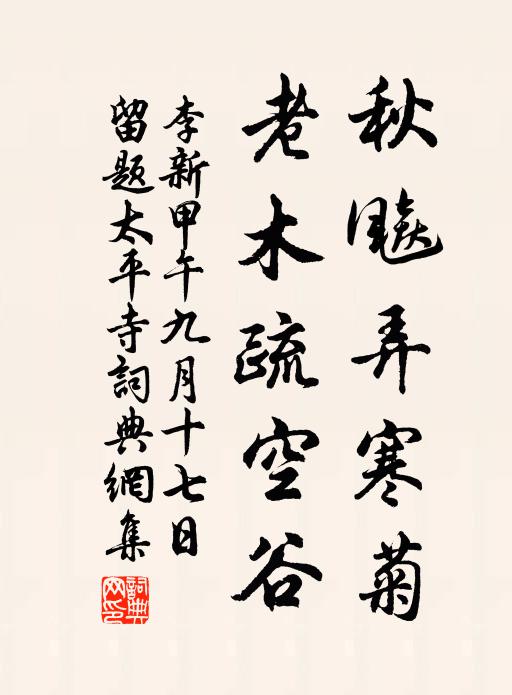 秋飈弄寒菊
老木疏空谷
李新甲午九月十七日
留題太平寺詞典網集
詞典網印